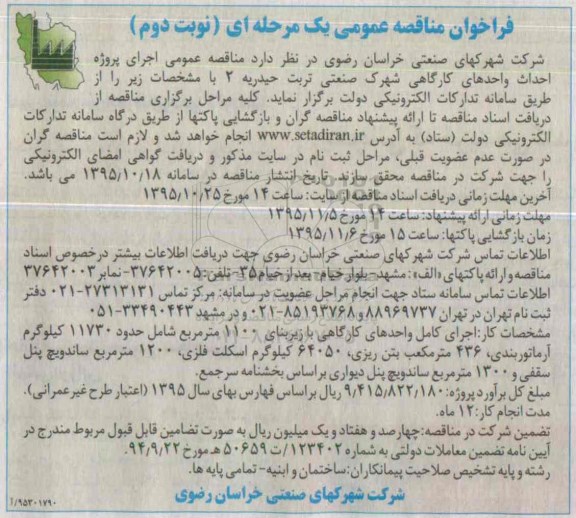 فراخوان مناقصه عمومی یک مرحله ای (نوبت دوم)
شرکت شهرکهای صنعتی خراسان رضوی در نظر دارد مناقصه عمومی اجرای پروژه
احداث واحدهای کارگاهی شهرک صنعتی تربت حیدریه ۲ با مشخصات زیر را از
طریق سامانه تدارکات الکترونیکی دولت برگزار نماید. کلیه مراحل برگزاری مناقصه از
دریافت اسناد مناقصه تا ارائه پیشنهاد مناقصه گران و بازگشایی پاکتها از طریق درگاه سامانه تدارکات
الکترونیکی دولت (ستاد) به آدرس www.setadiran.ir انجام خواهد شد و لازم است مناقصه گران
در صورت عدم عضویت قبلی، مراحل ثبت نام در سایت مذکور و دریافت گواهی امضای الکترونیکی
را جهت شرکت در مناقصه محقق سازند. تاریخ انتشار مناقصه در سامانه ۱۳۹۵,۱۰,۱۸ می باشد.
آخرین مهلت زمانی دریافت اسناد مناقصه از سایت: ساعت ۱۴ مورخ ۱۳۹۵,۱۰,۲۵
مهلت زمانی ارائه پیشنهاد: ساعت ۱۴ مورخ ۱۳۹۵,۱۱,۵
زمان بازگشایی پاکتها: ساعت ۱۵ مورخ ۱۳۹۵,۱۱,۶
اطلاعات تماس شرکت شهرکهای صنعتی خراسان رضوی جهت دریافت اطلاعات بیشتر درخصوص اسناد
مناقصه و ارائه پاکتهای «الف»: مشهد- بلوار خیام- بعد از خیام ۳۵- تلفن: ۳۷۶۴۲۰۰۵- نمابر ۳۷۶۴۲۰۰۳
اطلاعات تماس سامانه ستاد جهت انجام مراحل عضویت در سامانه: مرکز تماس ۲۷۳۱۳۱۳۱-۰۲۱ دفتر
ثبت نام تهران در تهران ۸۸۹۶۹۷۳۷ و ۸۵۱۹۳۷۶۸-۰۲۱ و در مشهد ۳۳۴۹۰۴۴۳-۰۵۱
مشخصات کار:اجرای کامل واحدهای کارگاهی با زیربنای ۱۱۰۰ مترمربع شامل حدود ۱۱۷۳۰ کیلوگرم
آرماتوربندی، ۴۳۶ مترمکعب بتن ریزی، ۶۴۰۵۰ کیلوگرم اسکلت فلزی، ۱۲۰۰ مترمربع ساندویچ پنل
سقفی و ۱۳۰۰ مترمربع ساندویچ پنل دیواری براساس بخشنامه سرجمع.
مبلغ کل برآورد پروژه: ۹,۴۱۵,۸۲۲,۱۸۰ ریال براساس فهارس بهای سال ۱۳۹۵ (اعتبار طرح غیرعمرانی).
مدت انجام کار: ۱۲ ماه.
تضمین شرکت در مناقصه: چهارصد و هفتاد و یک میلیون ریال به صورت تضامین قابل قبول مربوط مندرج در
آیین نامه تضمین معاملات دولتی به شماره ۱۲۳۴۰۲/ت ۵۰۶۵۹ هـ مورخ ۹۴,۹,۲۲.
رشته و پایه تشخیص صلاحیت پیمانکاران: ساختمان و ابنیه- تمامی پایه ها.
شرکت شهرکهای صنعتی خراسان رضوی